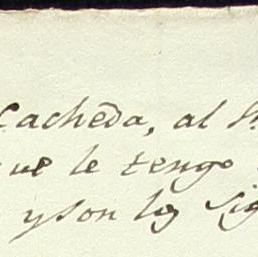 Cacheda, al
que le tengo
yson los